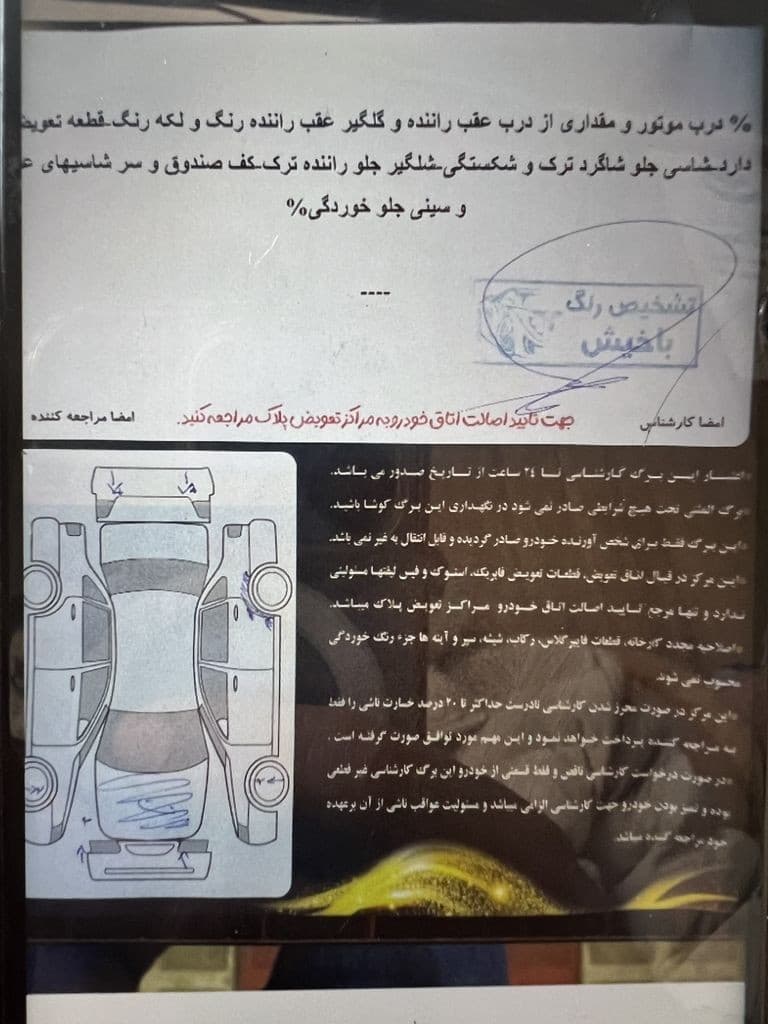 % درب موتور و مقداری از درب عقب راننده و گلگیر عقب راننده رنگ و لکه رنگ-قطعه
دارد-شاسی جلو شاگرد ترک و شکستگی-شلگیر جلو راننده ترک-کف صندوق و سر شاسیهای
و سینی جلو خوردگی%
----
تشخیص رنگ
باخیش
امضا کارشناس
جهت تایید اصالت اتاق خودرو به مراکز تعویض پلاک مراجعه کنید.
امضا مراجعه کننده
اعتبار این برگ کارشناسی تا ۲۴ ساعت از تاریخ صدور می باشد.
برگ المثنی تحت هیچ شرایطی صادر نمی شود در نگهداری این برگ کوشا باشید.
این برگ فقط برای شخص آورنده خودرو صادر گردیده و قابل انتقال به غیر نمی باشد.
این مرکز در قبال اتاق تعویض، قطعات تعویض فابریک، استوک و فیس لیفتها مسئولیتی
ندارد و تنها مرجع تایید اصالت اتاق خودرو مراکز تعویض پلاک میباشد.
اصلاحیه مجدد کارخانه، قطعات فایبرگلاس، رکاب، شیشه، سپر و آینه ها جزء رنگ خوردگی
محسوب نمی شوند.
این مرکز در صورت محرز شدن کارشناسی نادرست حداکثر تا ۲۰ درصد خسارت ناشی را فقط
به مراجعه کننده پرداخت خواهد نمود و این مهم مورد توافق صورت گرفته است.
در صورت درخواست کارشناسی ناقص و فقط قسمتی از خودرو این برگ کارشناسی غیر قطعی
بوده و تمیز بودن خودرو جهت کارشناسی الزامی میباشد و مسئولیت عواقب ناشی از آن برعهده
خود مراجعه کننده میباشد.